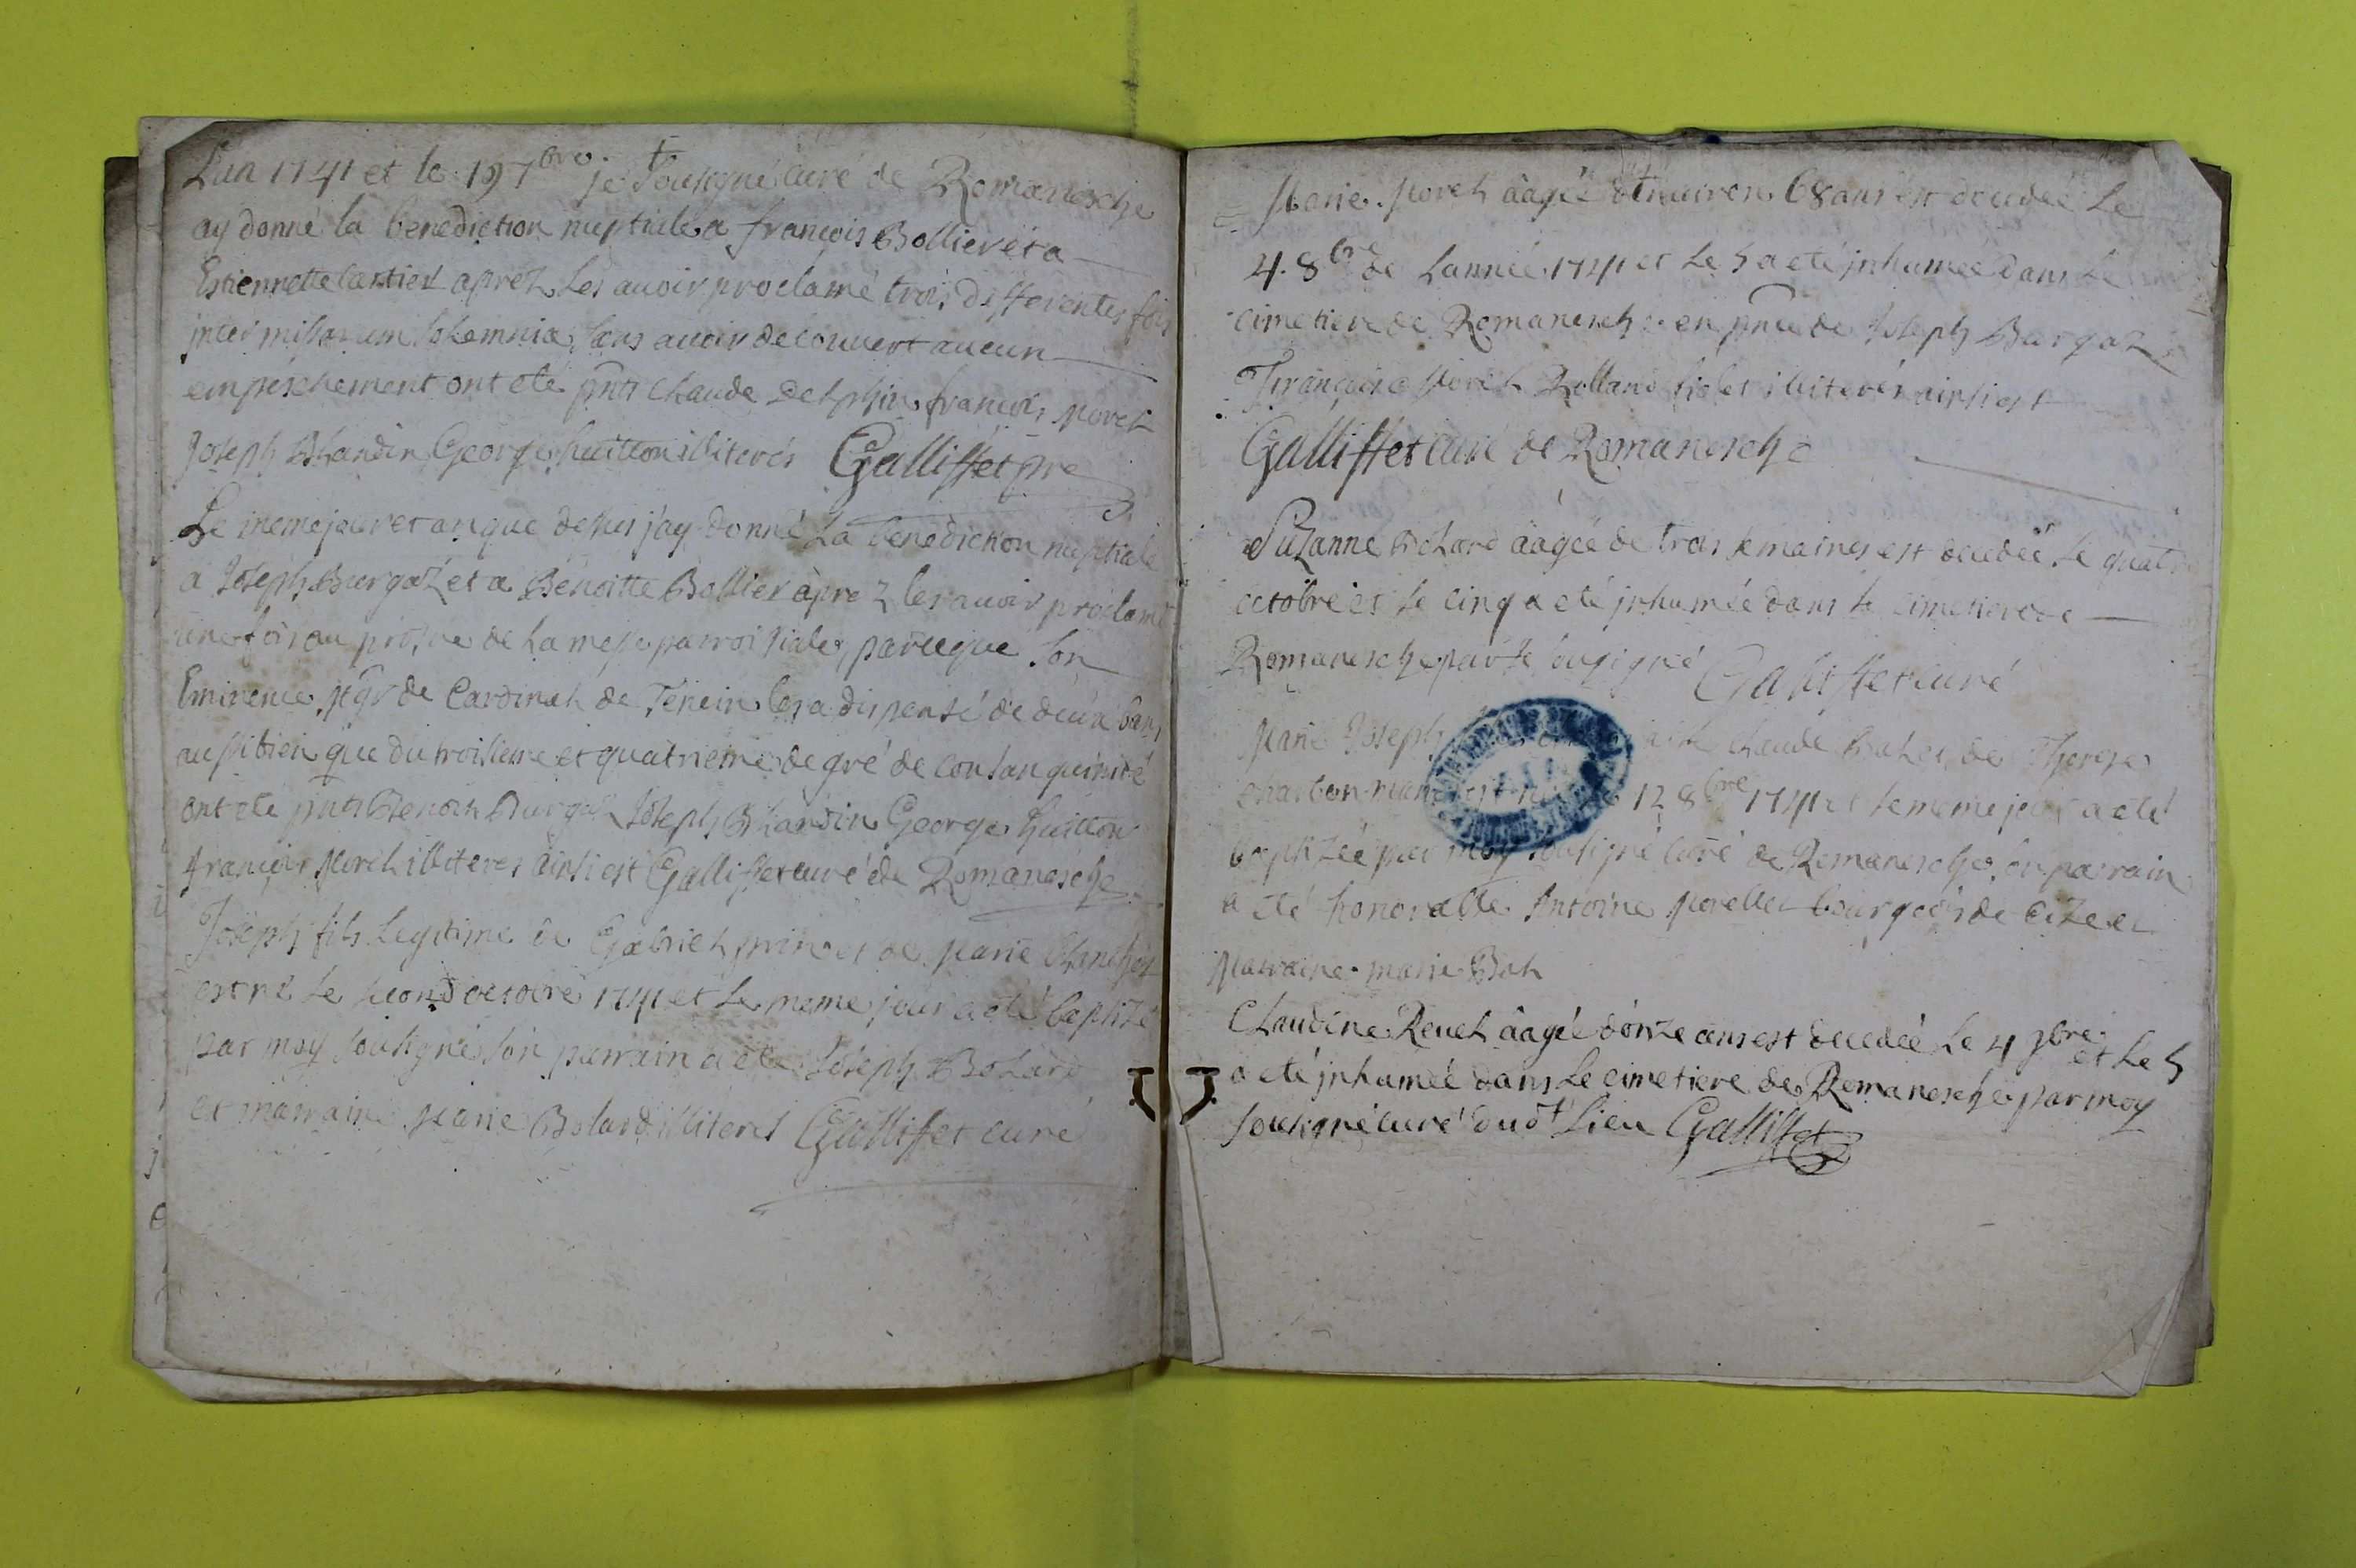 L'an 1741 et le 19 7bre je Soussigné Curé de Romanesche
ay donné la benediction nuptiale a françois Bollier et a
Estiennette Cartier aprez les avoir proclamé trois differentes fois
inter missarum solemnia sans avoir decouvert aucun
empeschement ont eté pnts Claude Delphin françois Morel
Joseph Blandin George Guitton illiterés Galliffet pre
Le meme jour et an que dessus j'ay donné la benediction nuptiale
a Joseph Burgaz et a Benoitte Bollier aprez les avoir proclamé
une fois au prosne de la messe parroissiale, parceque Son
Eminence Mgr de Cardinal de Tencin les a dispensé de deux bans
aussi bien que du troisieme et quatrieme degré de consanguinité
ont eté pnts Benoit Burgaz Joseph Blandin George Guitton
françois Morel illiteres ainsi est Galliffet curé de Romanesche
Joseph fils legitime de Gabriel et de Marie
est né le second octobre 1741 et le meme jour a eté baptizé
par moy soussigné son parrain a eté Joseph Bolard
et marraine Marie Bolard illiterés Galliffet curé
Marie Morel âagée d'environ 68 ans est decedée le
4. 8bre de l'année 1741 et le 5 a eté jnhumée dans le
cimetiere de Romanesche en pnce de Joseph Burgaz
françoise Morel Rolland illiterés ainsi est
Galliffet curé de Romanesche
Suzanne âagée de trois semaines est decedée le quatre
octobre et le cinq a eté jnhumée dans le cimetiere de
Romanesche par le sousigné Galliffet curé
Marie Joseph Claude de Therese
12 8bre 1741 et le meme jour a eté
baptizée par moy sousigné curé de Romanesche son parrain
a eté honorable Antoine Morellet bourgeois de Cize et
Marraine marie Bol
Claudine Revel âagée d'onze ans est decedée le 4 9bre et le 5
a eté jnhumée dans le cimetiere de Romanesche par moy
soussigné curé dudt lieu Galliffet